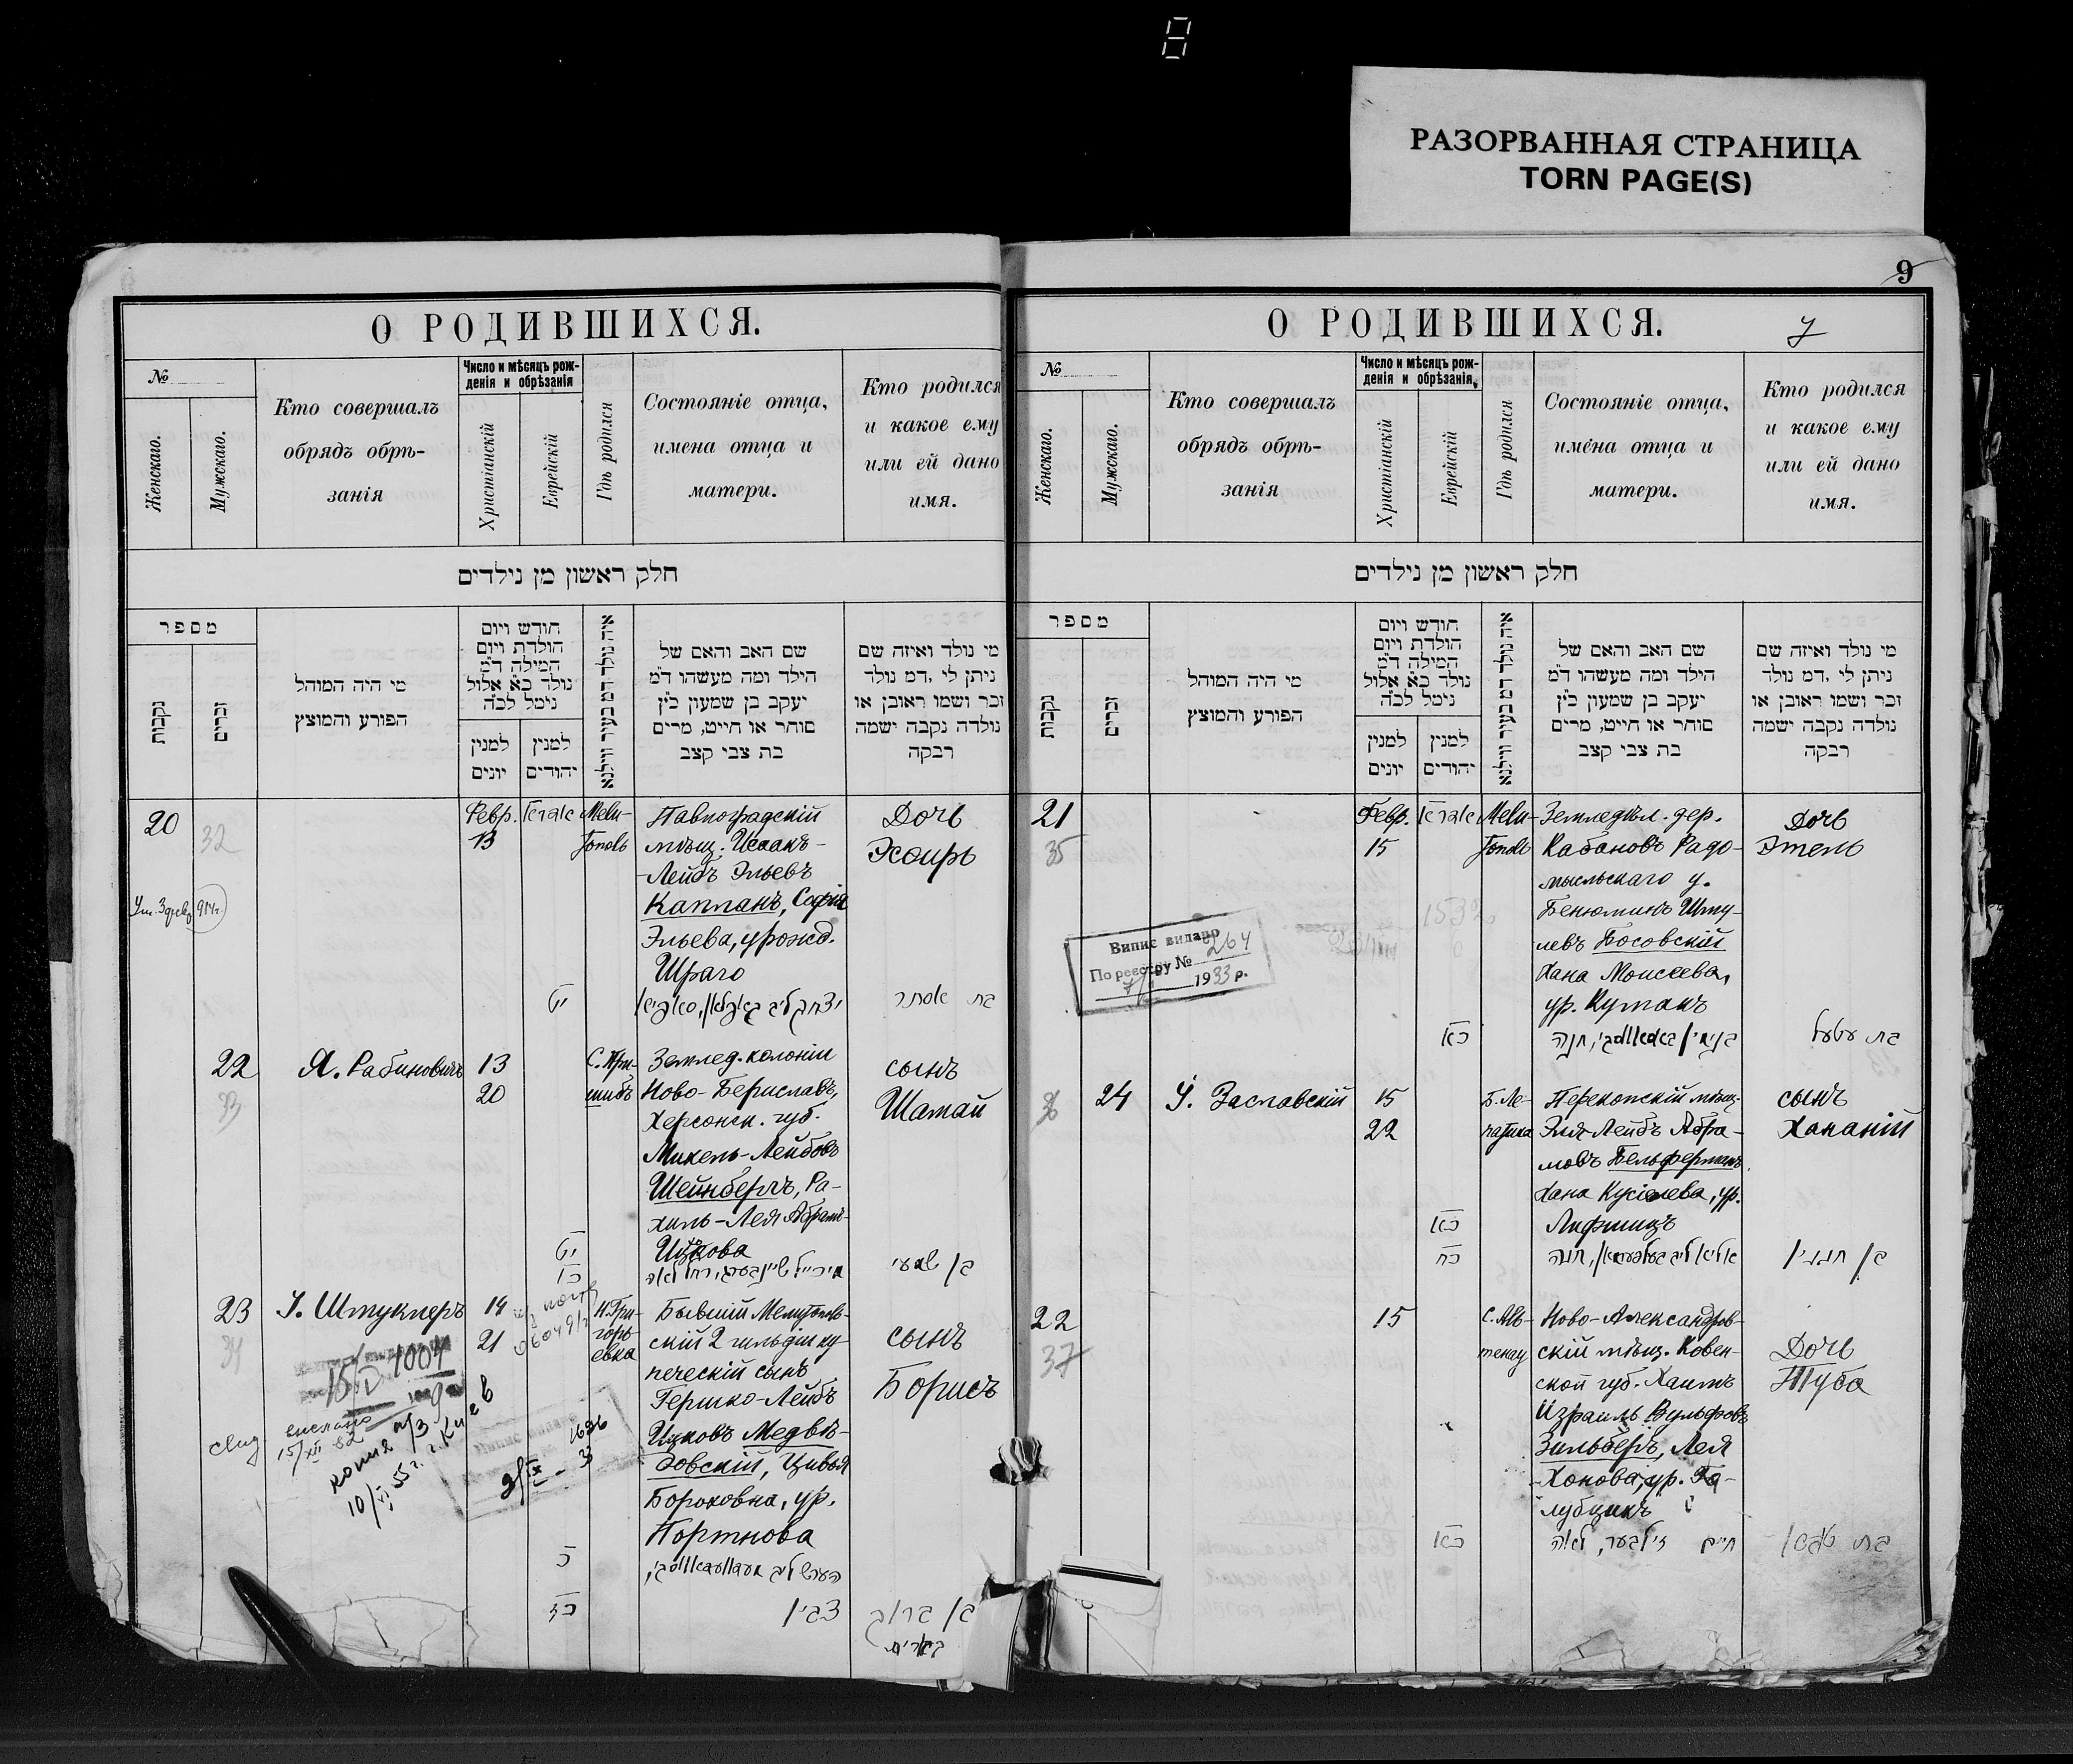 РАЗОРВАННАЯ СТРАНИЦА
TORN PAGE(S)
О РОДИВШИХСЯ.
№
Женскаго.
Мужскаго.
Кто совершалъ
обрядъ обрѣ-
занія
Число и мѣсяцъ рож-
денія и обрѣзанія
Христіанскій
Еврейскій
Гдѣ родился
Состояніе отца,
имена отца и
матери.
Кто родился
и какое ему
или ей дано
имя.
חלק ראשון מן נילדים
מספר
נקבות
זכרים
מי היה המוהל
הפורע והמוצץ
חודש ויום
הולדת ויום
המילה ד״מ
נולד כ״א אלול
נימל לכ״ה
למנין
יונים
למנין
יהודים
שם האב והאם של
הילד ומה מעשהו ד״מ
יעקב בן שמעון כ״ץ
סוחר או חייט, מרים
בת צבי קצב
מי נולד ואיזה שם
ניתן לי, דמ נולד
זכר ושמו ראובן או
נולדה נקבה ישמה
רבקה
20
32
Февр.
13
Мели-
тополь
Павлоградскій
мѣщ. Исаакъ-
-Лейбъ Эльевъ
Капланъ, Софія
Эльева, урожд.
Шраго
Дочь
Эсѳирь
יט
בת אסתר
22
33
Я. Рабиновичъ
13
20
Землед. колоніи
Ново-Бериславъ,
Херсонск. губ.
Михель-Лейбовъ
Шейнбергъ, Ра-
хиль-Лея Абрамъ-
Ицкова
сынъ
Шамай
יט
מיכייל שיינבערג, רחל לאה
בן שמעי
23
У. Штуклеръ
14
21
Н. Гри-
горь-
евка
Бывшій Мелитополь-
скій 2 гильдіи ку-
печескій сынъ
Гершко-Лейбъ
Ицковъ Медвѣ-
довскій, Цивья
Бороховна, ур.
Портнова
сынъ
Борисъ
כ
כז
בן ברוך
копия
10/VI 55 г. г. Киев
1696
9
О РОДИВШИХСЯ.
7
№
Женскаго.
Мужскаго.
Кто совершалъ
обрядъ обрѣ-
занія
Число и мѣсяцъ рож-
денія и обрѣзанія,
Христіанскій
Еврейскій
Гдѣ родился
Состояніе отца,
имена отца и
матери.
Кто родился
и какое ему
или ей дано
имя.
חלק ראשון מן נילדים
מספר
נקבות
זכרים
מי היה המוהל
הפורע והמוצץ
חודש ויום
הולדת ויום
המילה ד״מ
נולד כ״א אלול
נימל לכ״ה
למנין
יונים
למנין
יהודים
שם האב והאם של
הילד ומה מעשהו ד״מ
יעקב בן שמעון כ״ץ
סוחר או חייט, מרים
בת צבי קצב
מי נולד ואיזה שם
ניתן לי, דמ נולד
זכר ושמו ראובן או
נולדה נקבה ישמה
רבקה
21
35
Февр.
15
Мели-
тополь
Земледѣл. дер.
Кабановъ Радо-
мысльскаго у.
Бенюминъ Шму-
левъ Босовскій
Хана Моисеева,
ур. Куманъ
Дочь
Этель
Випис видано
По реєстру № 264
1933 р.
כא
בת עטעל
24
У. Заславскій
15
22
Б. Ле-
патиха
Перекопскій мѣщ.
Эля-Лейбъ Абра-
мовъ Бельферманъ
Хана Кусіелева, ур.
Лифшицъ
сынъ
Хананій
כא
כח
22
37
15
Ново-Александров-
скій мѣщ. Ковен-
ской губ. Хаимъ
Израиль Вульфовъ
Зильберъ, Лея
-Хонова, ур. Го-
лубчикъ
Дочь
Туба
כא
חיים זילבער, לאה